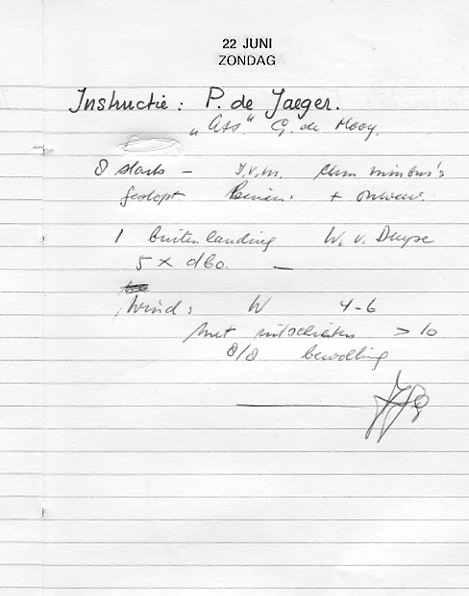 22 JUNI
ZONDAG
Instructie: P. de Jaeger.
„Ass." G. de Mooy.
8 starts - I.v.m.
gestopt + onweer.
1 buitenlanding W. v. Duyse
5 x dbo. —
Wind: W 4-6
met uitschieters > 10
8/8 bewolking